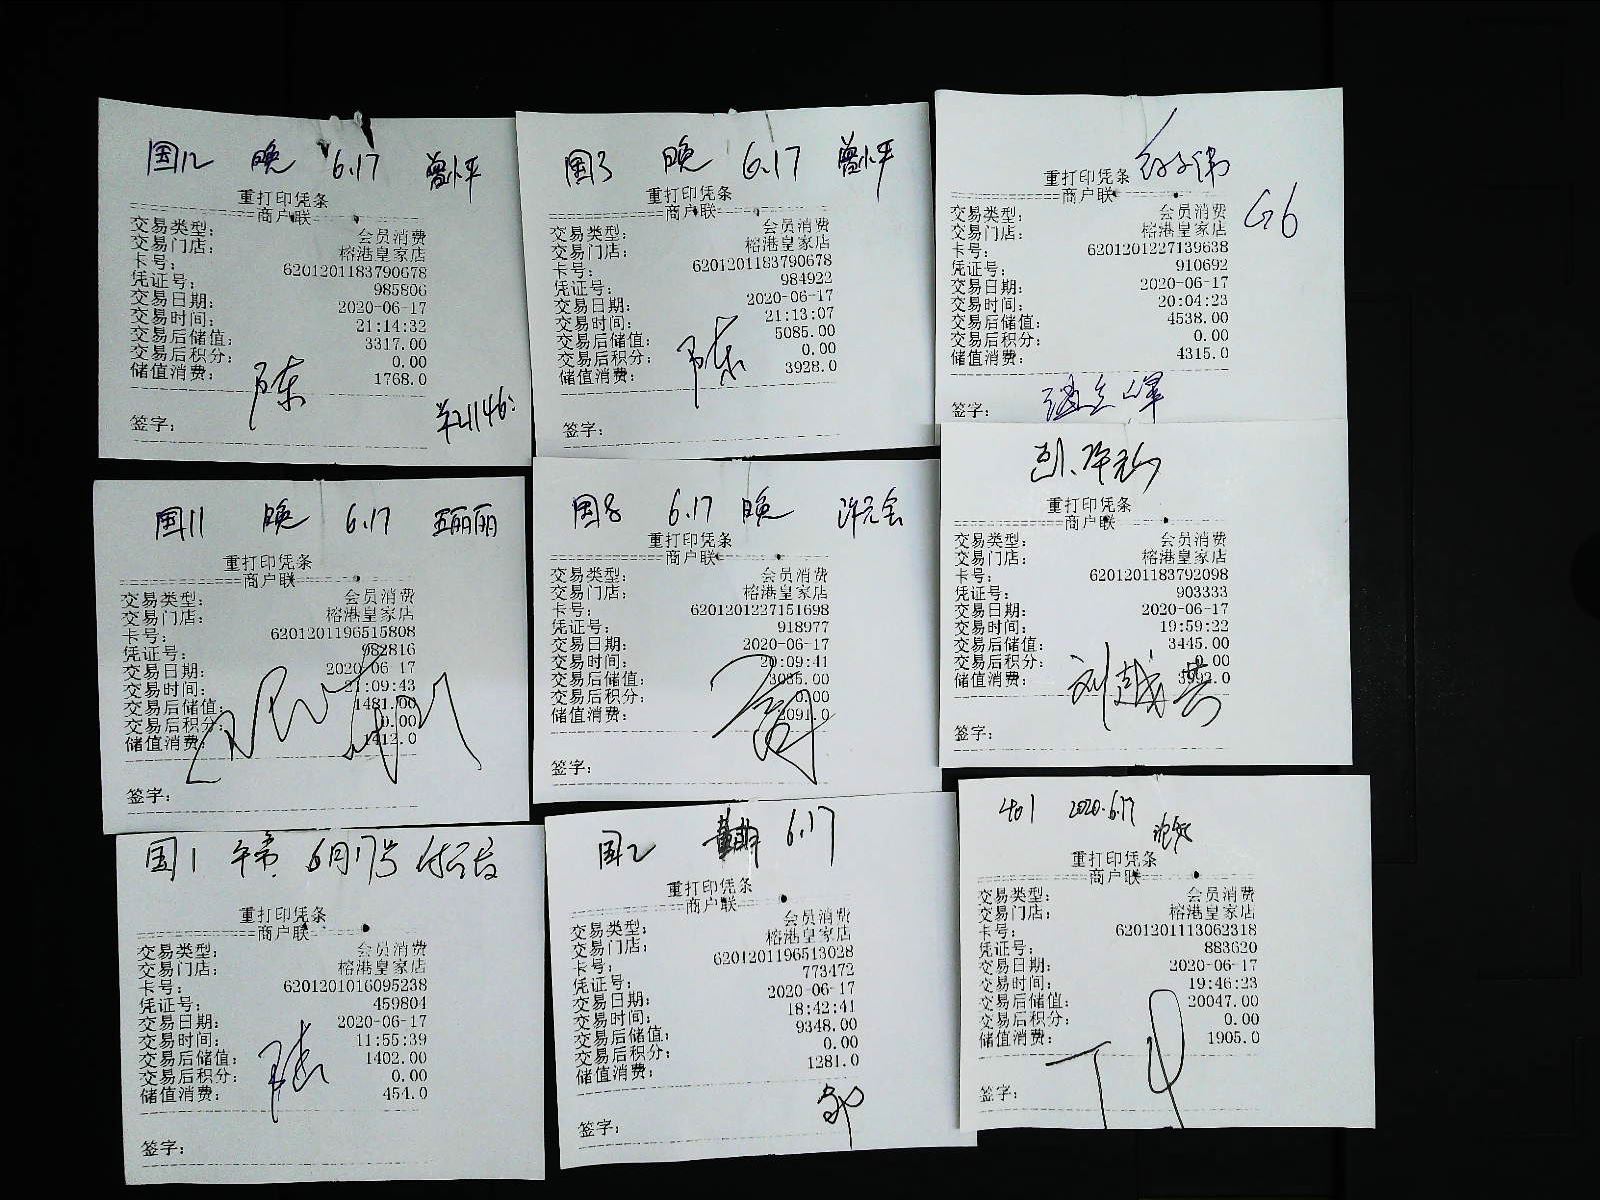 国12 晚 6.17 曾小平
重打印凭条
商户联
交易类型: 会员消费
交易门店: 榕港皇家店
卡号: 6201201183790678
凭证号: 985806
交易日期: 2020-06-17
交易时间: 21:14:32
交易后储值: 3317.00
交易后积分: 0.00
储值消费: 1768.0
陈
签字:
国3 晚 6.17 曾小平
重打印凭条
商户联
交易类型: 会员消费
交易门店: 榕港皇家店
卡号: 6201201183790678
凭证号: 984922
交易日期: 2020-06-17
交易时间: 21:13:07
交易后储值: 5085.00
交易后积分: 0.00
储值消费: 3928.0
陈
签字:
G6
重打印凭条
商户联
交易类型: 会员消费
交易门店: 榕港皇家店
卡号: 6201201227139638
凭证号: 910692
交易日期: 2020-06-17
交易时间: 20:04:23
交易后储值: 4538.00
交易后积分: 0.00
储值消费: 4315.0
签字:
国11 晚 6.17 丽丽
重打印凭条
商户联
交易类型: 会员消费
交易门店: 榕港皇家店
卡号: 6201201196515808
凭证号: 982816
交易日期: 2020-06-17
交易时间: 21:09:43
交易后储值: 1481.00
交易后积分: 0.00
储值消费: 1412.0
签字:
国8 6.17 晚 许元会
重打印凭条
商户联
交易类型: 会员消费
交易门店: 榕港皇家店
卡号: 6201201227151698
凭证号: 918977
交易日期: 2020-06-17
交易时间: 20:09:41
交易后储值: 3035.00
交易后积分: 0.00
储值消费: 2091.0
签字:
重打印凭条
商户联
交易类型: 会员消费
交易门店: 榕港皇家店
卡号: 6201201183792098
凭证号: 903333
交易日期: 2020-06-17
交易时间: 19:59:22
交易后储值: 3445.00
交易后积分: 0.00
储值消费:
刘越芸
签字:
国1 午市 6月17号
重打印凭条
商户联
交易类型: 会员消费
交易门店: 榕港皇家店
卡号: 6201201016095238
凭证号: 459804
交易日期: 2020-06-17
交易时间: 11:55:39
交易后储值: 1402.00
交易后积分: 0.00
储值消费: 454.0
签字:
国2 6.17
重打印凭条
商户联
交易类型: 会员消费
交易门店: 榕港皇家店
卡号: 6201201196513028
凭证号: 773472
交易日期: 2020-06-17
交易时间: 18:42:41
交易后储值: 9348.00
交易后积分: 0.00
储值消费: 1281.0
签字:
401 2020.6.17
重打印凭条
商户联
交易类型: 会员消费
交易门店: 榕港皇家店
卡号: 6201201113062318
凭证号: 883620
交易日期: 2020-06-17
交易时间: 19:46:23
交易后储值: 20047.00
交易后积分: 0.00
储值消费: 1905.0
签字: